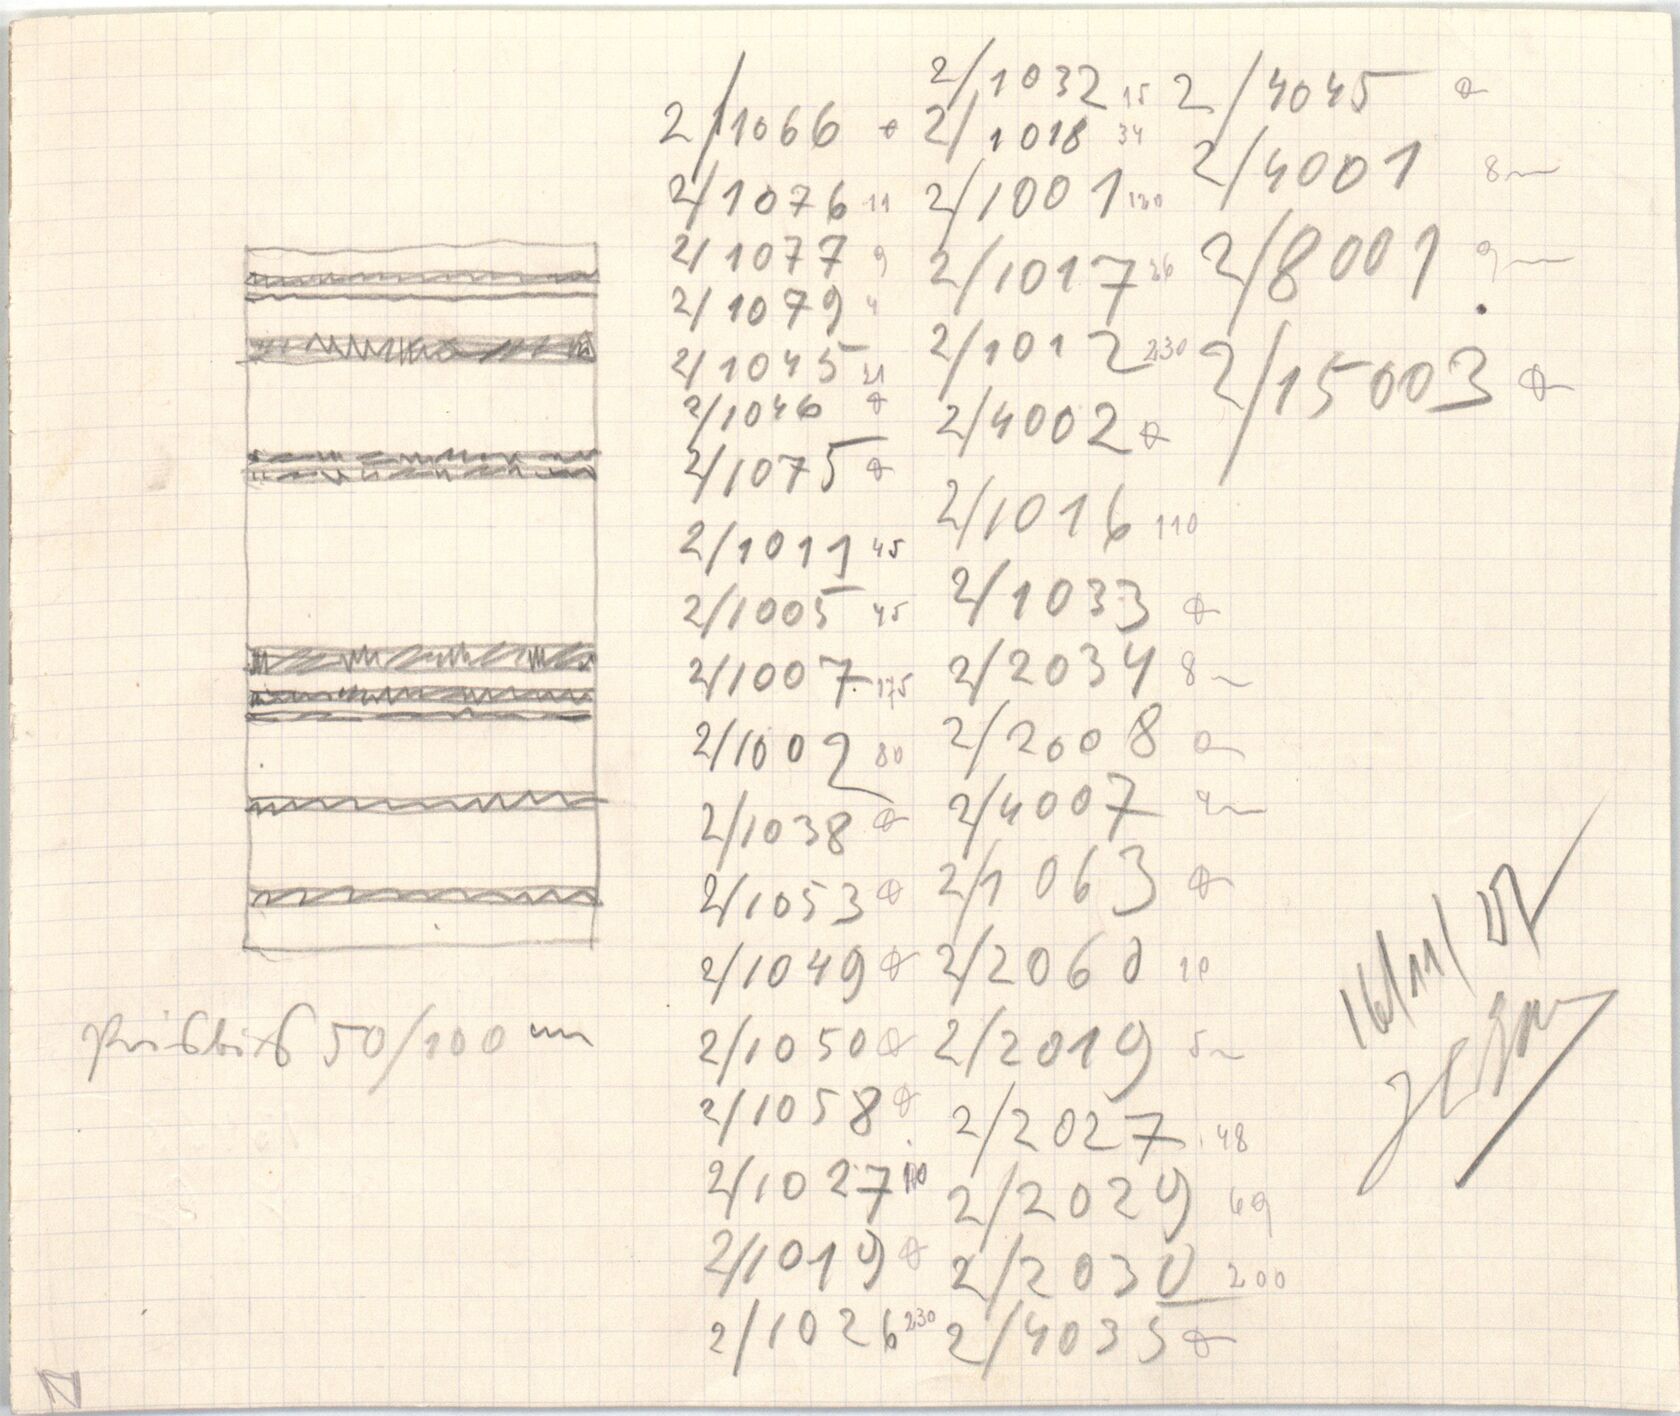 2/1066 ⌀
2/1076 11
2/1077 9
2/1079 4
2/1045 21
2/1046 ⌀
2/1075 ⌀
2/1011 45
2/1005 45
2/1007 175
2/1002 80
2/1038 ⌀
2/1053 ⌀
2/1049 ⌀
2/1050 ⌀
2/1058 ⌀
2/1027
2/1019 ⌀
2/1026 230
2/1032 15
2/1018 34
2/1001 130
2/1017 26
2/1012 230
2/4002 ⌀
2/1016 110
2/1033 ⌀
2/2034 8
2/2008 0
2/4007 4
2/1063 ⌀
2/2060 10
2/2019 5
2/2027 48
2/2029 69
2/2030 200
2/4035 ⌀
2/4045 ⌀
2/4001 8
2/8001 9
2/15003 ⌀
50/100 cm
16/11/